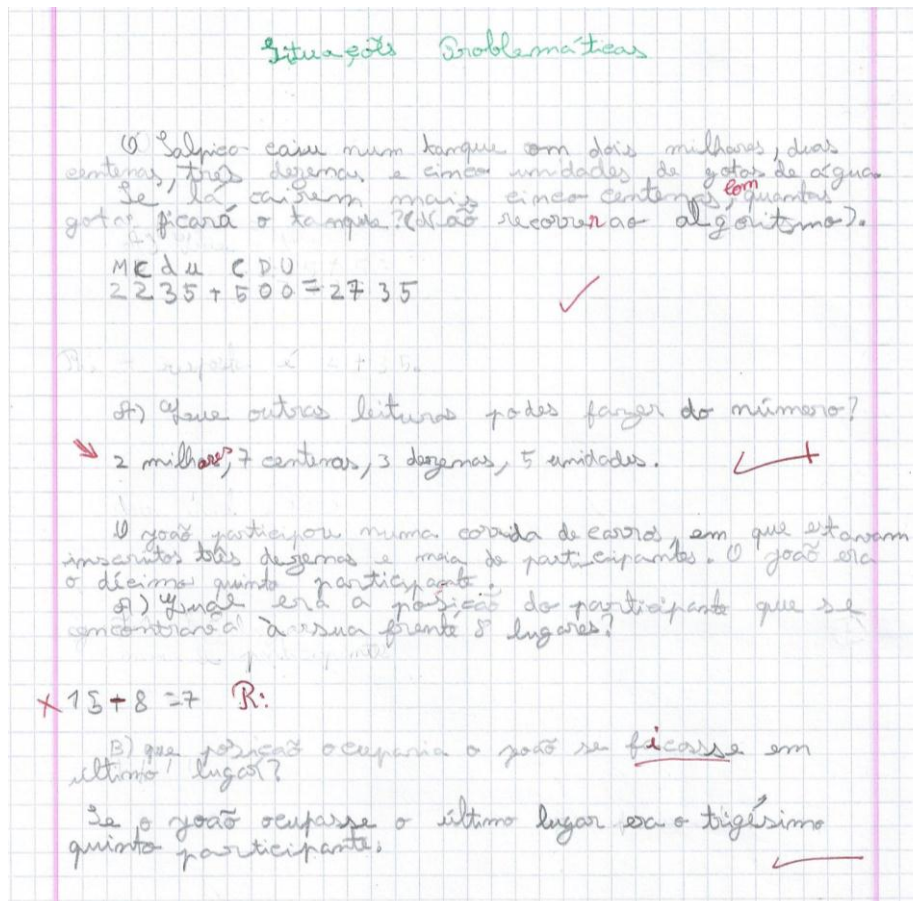 Situações Problemáticas
O Salpico caiu num tanque com dois milhares, duas
centenas, três dezenas e cinco unidades de gotas de água.
Se lá cairem mais cinco centenas, com quantas
gotas ficará o tanque? (Não recorrer ao algoritmo).
M C d u C D U
2 2 3 5 + 5 0 0 = 2 7 3 5
A) Que outras leituras podes fazer do número?
2 milhares, 7 centenas, 3 dezenas, 5 unidades.
O João participou numa corrida de carros, em que estavam
inscritos três dezenas e meia de participantes. O João era
o décimo quinto participante.
A) Qual era a posição do participante que se
encontrava à sua frente 8 lugares?
15 - 8 = 7 R:
B) que posição ocuparia o João se ficasse em
último lugar?
Se o João ocupasse o último lugar era o trigésimo
quinto participante.